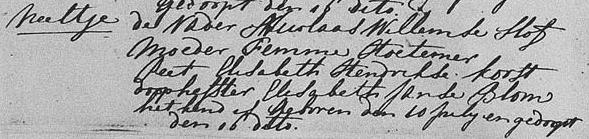 gedoopt den 16 dito
Neeltje de Vader Nicolaas Willemse Slof
Moeder Femme Stoetemer
Peet Elisabeth Hendrikse Koorst
doophefster Elisabeth Janse Blom
het kend is geboren den 10 July en gedoopt
den 16 dito.